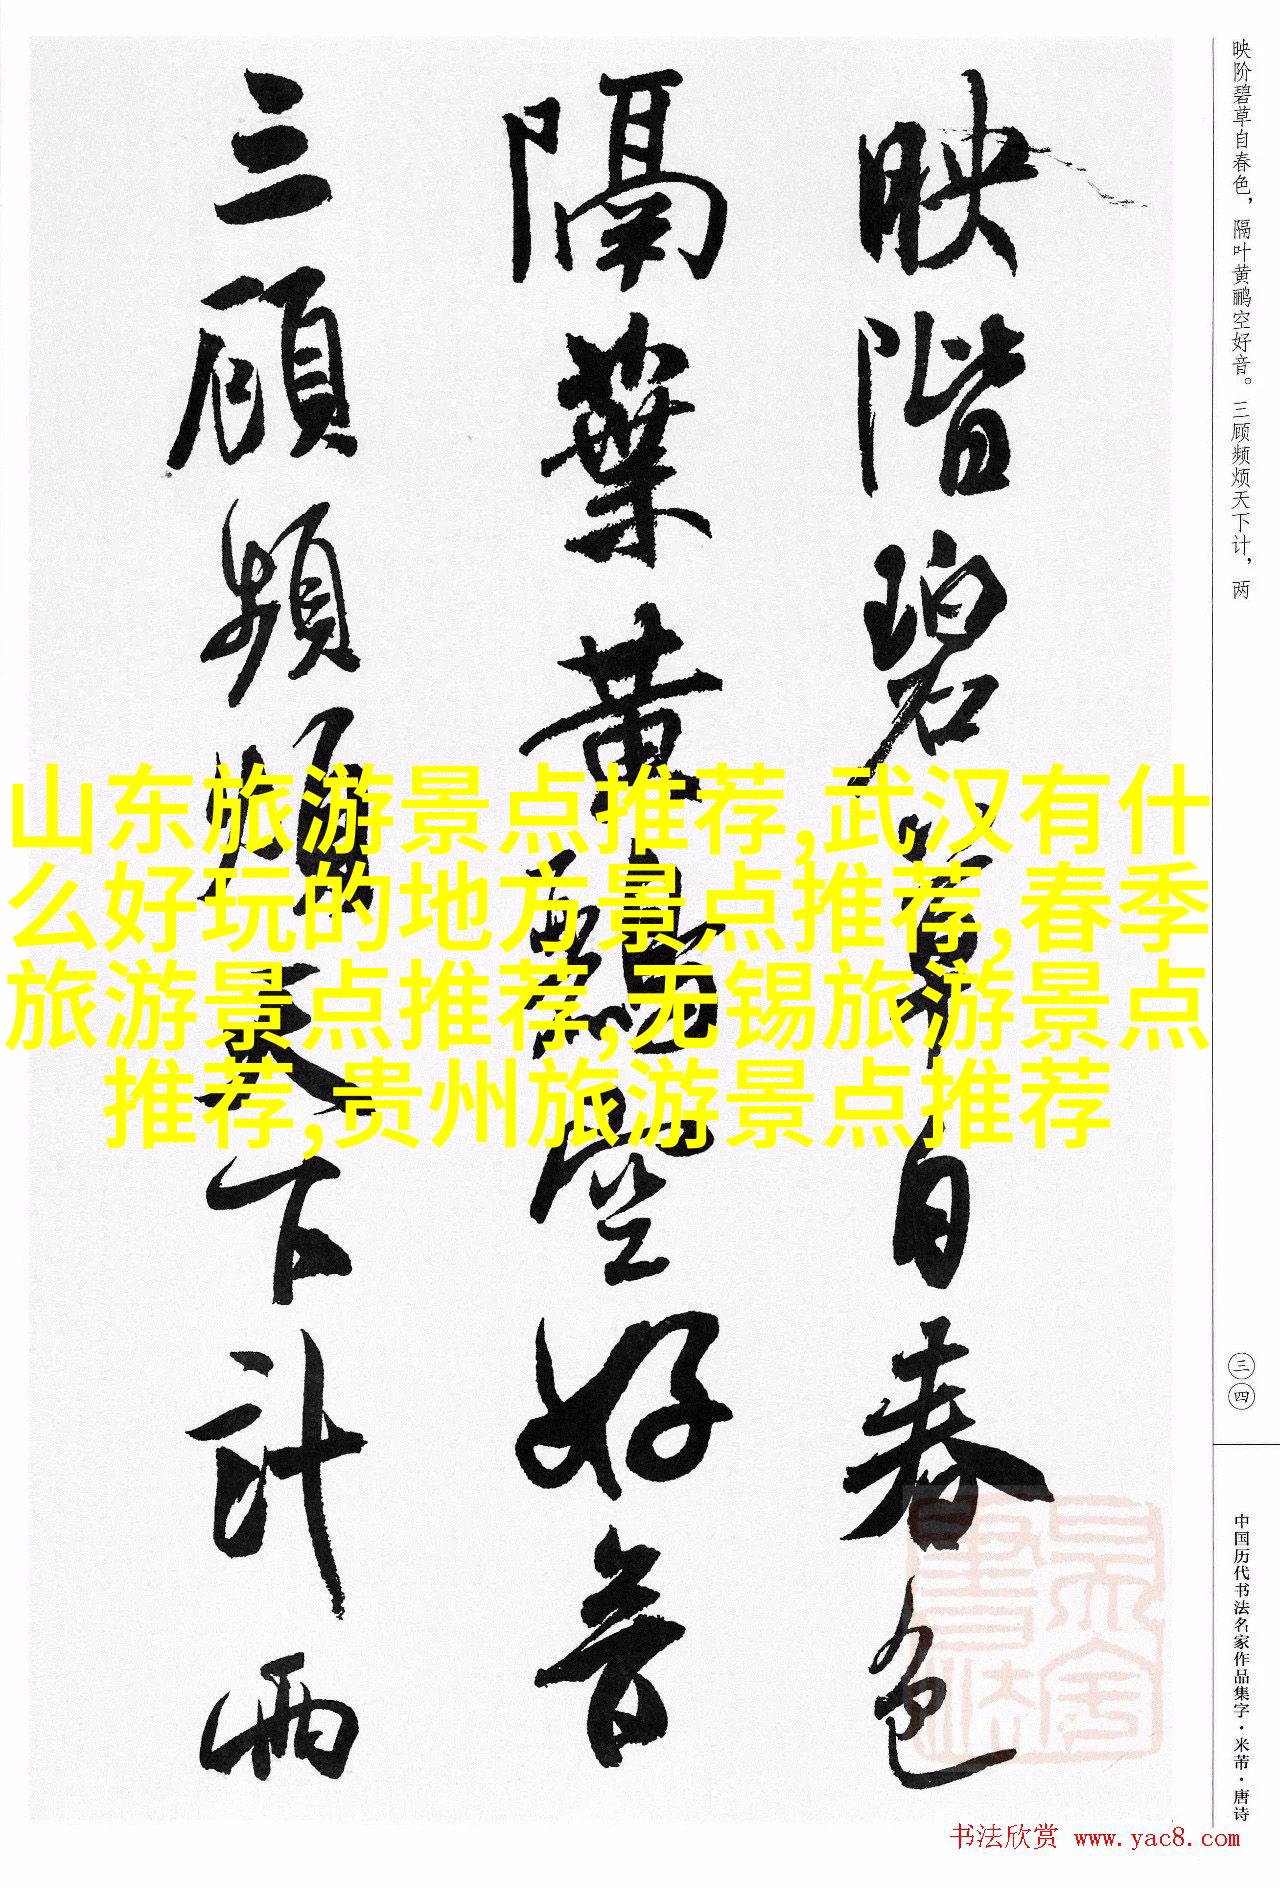 映階碧草自春色
隔葉黃鸝空好音
三顧頻煩天下計兩
映阶碧草自春色，隔叶黄鹂空好音。三顾频烦天下计，两
三四
中国历代书法名家作品集字·米芾·唐诗
山东旅游景点推荐,武汉有什
么好玩的地方景点推荐,春季
旅游景点推荐,无锡旅游景点
推荐,贵州旅游景点推荐
书法欣赏 www.yac8.com